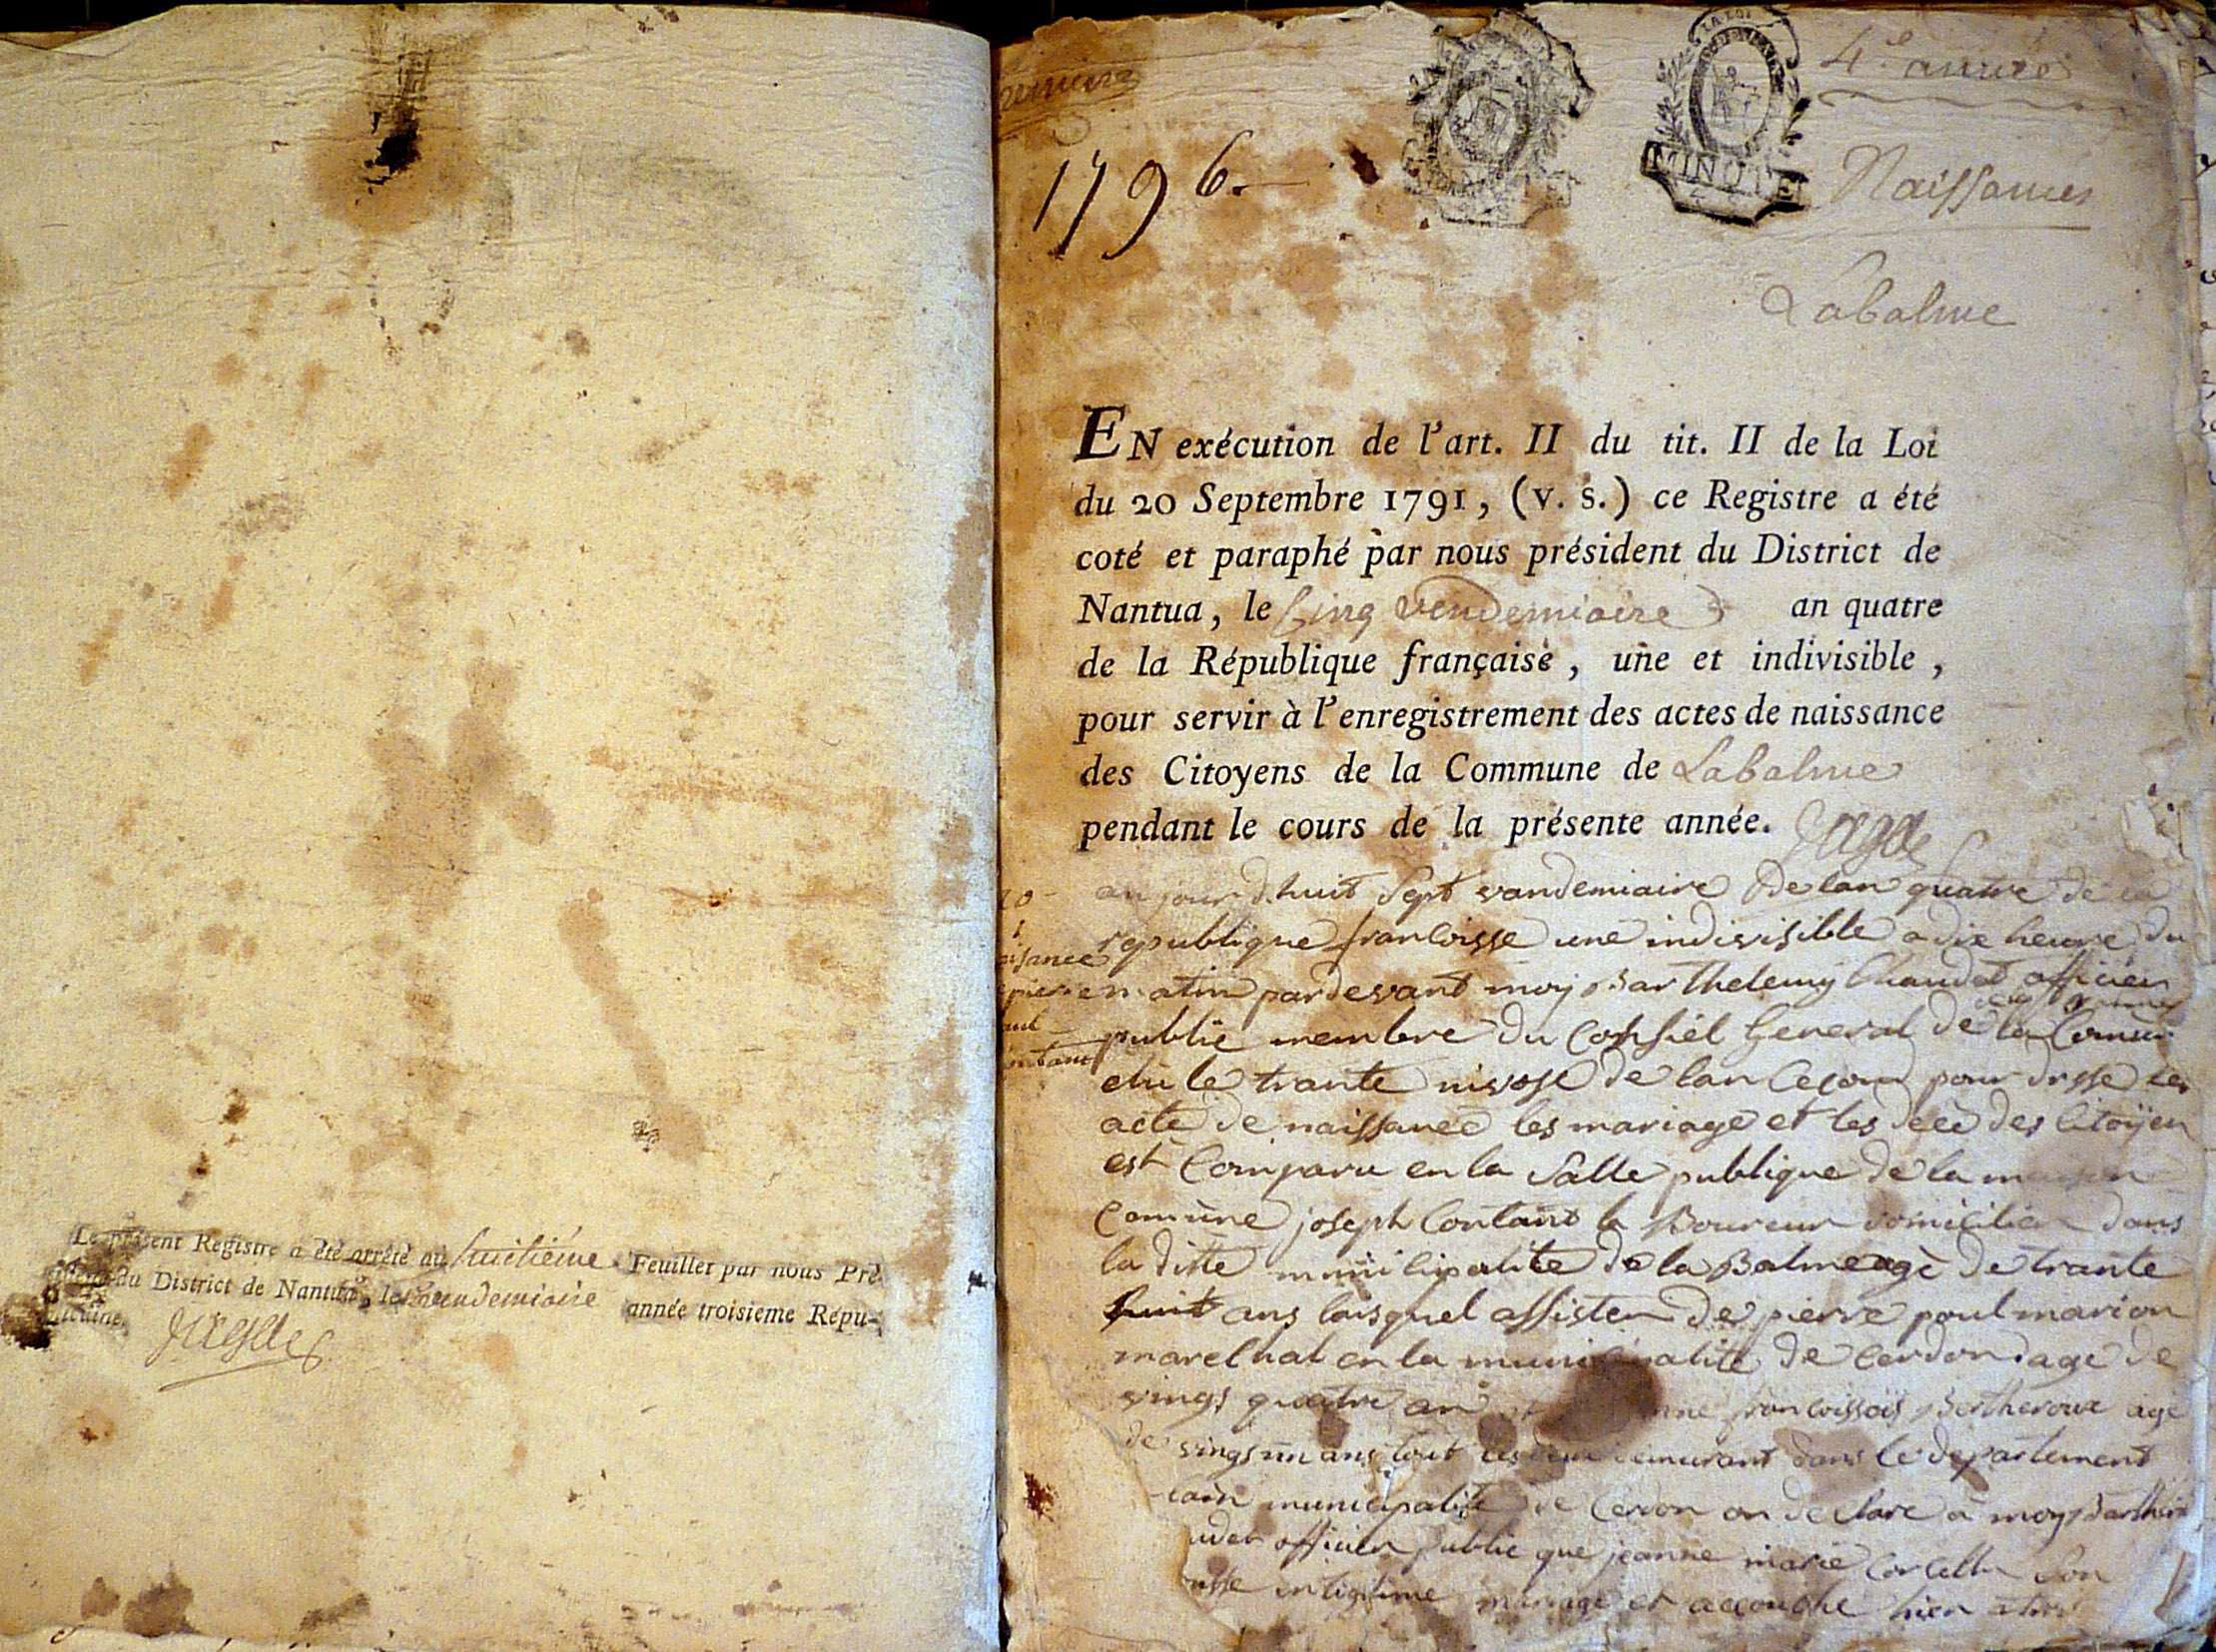 Le présent Registre a été arrêté au huitiéme Feuillet par nous Pré-
du District de Nantua, le vendemiaire année troisieme Répu-
premier
4.e année
1796.
LA LOI
MINUTE
Naissances
Labalme
EN exécution de l'art. II du tit. II de la Loi
du 20 Septembre 1791, (v. s.) ce Registre a été
coté et paraphé par nous président du District de
Nantua, le Cinq vendemiaire an quatre
de la République française, une et indivisible,
pour servir à l'enregistrement des actes de naissance
des Citoyens de la Commune de Labalme
pendant le cours de la présente année.
au jour d.huit sept vandemiaire de lan quatre de la
republique francoisse une indivisible a dix heure du
matin pardevant moy Barthelemy Chaudet officier
public membre du Consiel General de la Comun
elu le trante nivose de lan Cegond pour drsse les
acte de naissance les mariage et les décè des Citoÿen
est Comparu en la Salle publique de la maison
Comune joseph Contant la Boureur domicilier dans
la ditte municipalite de la Balme agè de trante
huit ans laisquel assister de pierre poul marion
marelhal en la municipalite de Cerdon age de
vings quatre an francoisois Bertheroux age
de vings un ans tout les deux demurant dans le departement
municipalite de Cerdon on declare a moy Barthele
officier public que jeanne marie Corcellu Son
en ligitime mariage et accouche hier